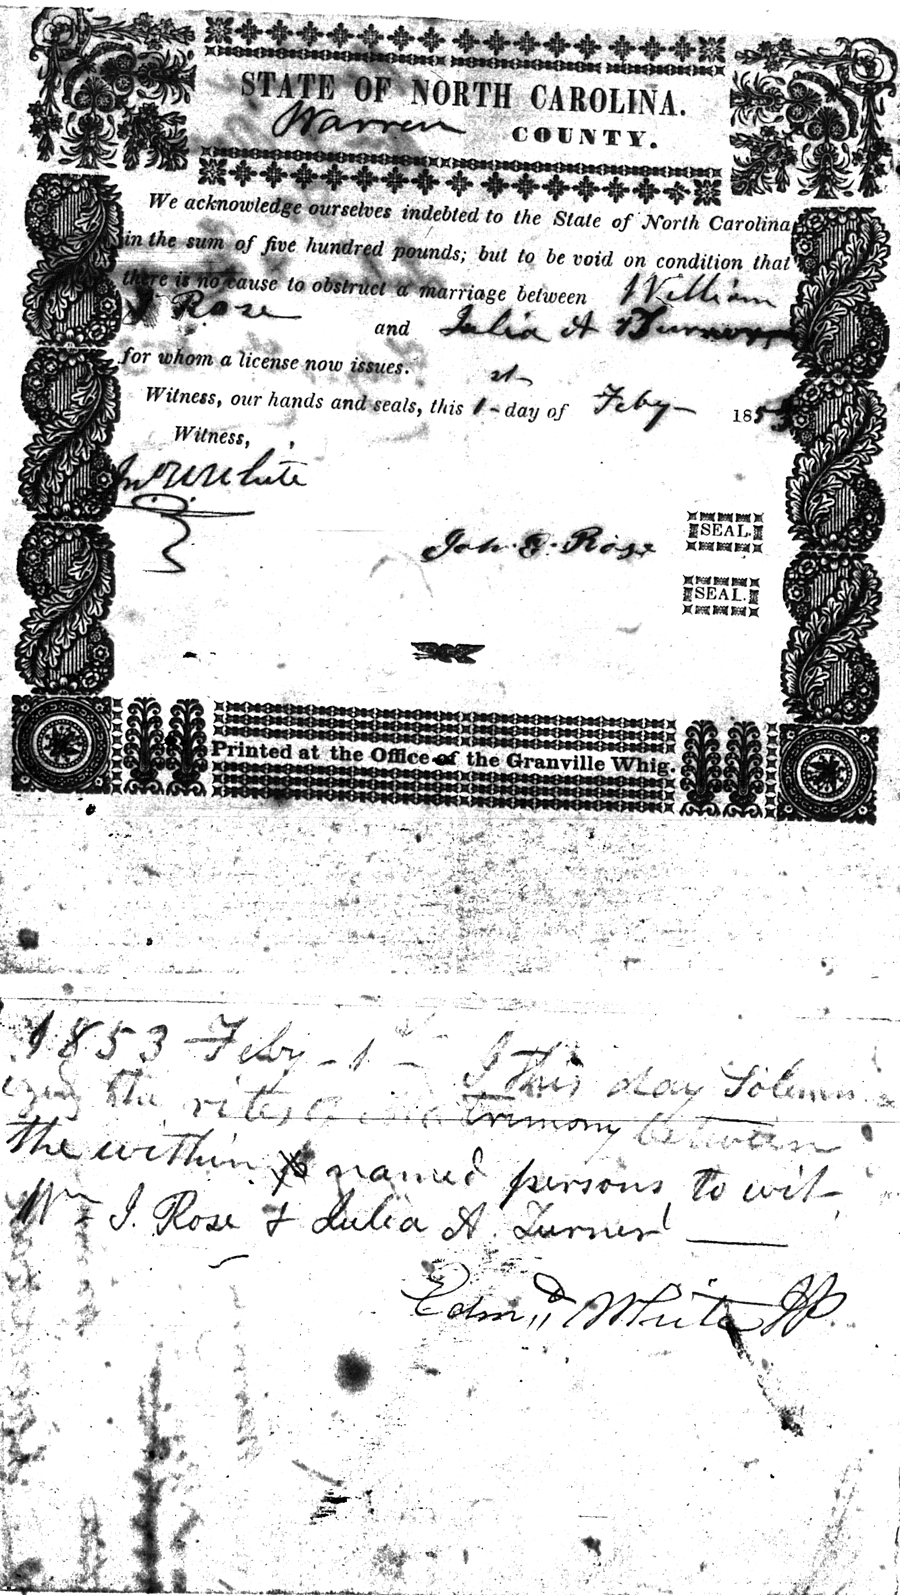 STATE OF NORTH CAROLINA.
Warren COUNTY.
We acknowledge ourselves indebted to the State of North Carolina
in the sum of five hundred pounds; but to be void on condition that
there is no cause to obstruct a marriage between William
J Rose and Julia A Turner
for whom a license now issues.
Witness, our hands and seals, this 1st day of Feby 1853
Witness,
White
John Rose SEAL.
SEAL.
Printed at the Office of the Granville Whig.
1853 Feby 1st I this day Solemn
ized the rites of matrimony between
the within named persons, to wit
Wm J. Rose & Julia A. Turner
Edmd White JP.